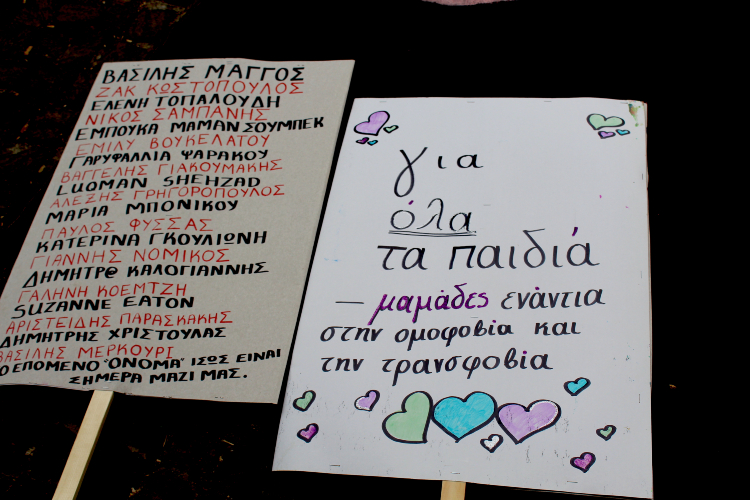 ΒΑΣΙΛΗΣ ΜΑΓΓΟΣ
ΖΑΚ ΚΩΣΤΟΠΟΥΛΟΣ
ΕΛΕΝΗ ΤΟΠΑΛΟΥΔΗ
ΝΙΚΟΣ ΣΑΜΠΑΝΗΣ
ΕΜΠΟΥΚΑ ΜΑΜΑΝ ΣΟΥΜΠΕΚ
ΕΜΙΛΥ ΒΟΥΚΕΛΑΤΟΥ
ΓΑΡΥΦΑΛΛΙΑ ΨΑΡΑΚΟΥ
ΒΑΓΓΕΛΗΣ ΓΙΑΚΟΥΜΑΚΗΣ
LUQMAN SHEHZAD
ΑΛΕΞΗΣ ΓΡΗΓΟΡΟΠΟΥΛΟΣ
ΜΑΡΙΑ ΜΠΟΝΙΚΟΥ
ΠΑΥΛΟΣ ΦΥΣΣΑΣ
ΚΑΤΕΡΙΝΑ ΓΚΟΥΛΙΩΝΗ
ΓΙΑΝΝΗΣ ΝΟΜΙΚΟΣ
ΔΗΜΗΤΡ@ ΚΑΛΟΓΙΑΝΝΗΣ
ΓΑΛΗΝΗ ΚΟΕΜΤΖΗ
SUZANNE EATON
ΑΡΙΣΤΕΙΔΗΣ ΠΑΡΑΣΚΑΚΗΣ
ΔΗΜΗΤΡΗΣ ΧΡΙΣΤΟΥΛΑΣ
ΒΑΣΙΛΗΣ ΜΕΡΚΟΥΡΙ
ΤΟ ΕΠΟΜΕΝΟ "ΟΝΟΜΑ" ΙΣΩΣ ΕΙΝΑΙ
ΣΗΜΕΡΑ ΜΑΖΙ ΜΑΣ.
για
όλα
τα παιδιά
— μαμάδες ενάντια
στην ομοφοβία και
την τρανσφοβία